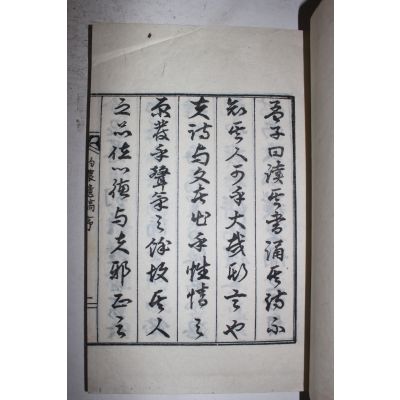 孟子曰讀其書誦其詩不
知其人可乎大哉斯言也
夫詩与文者出乎性情之
原發乎聲氣之餘故其人
之品位心德与夫邪正之
農遺稿 序
二